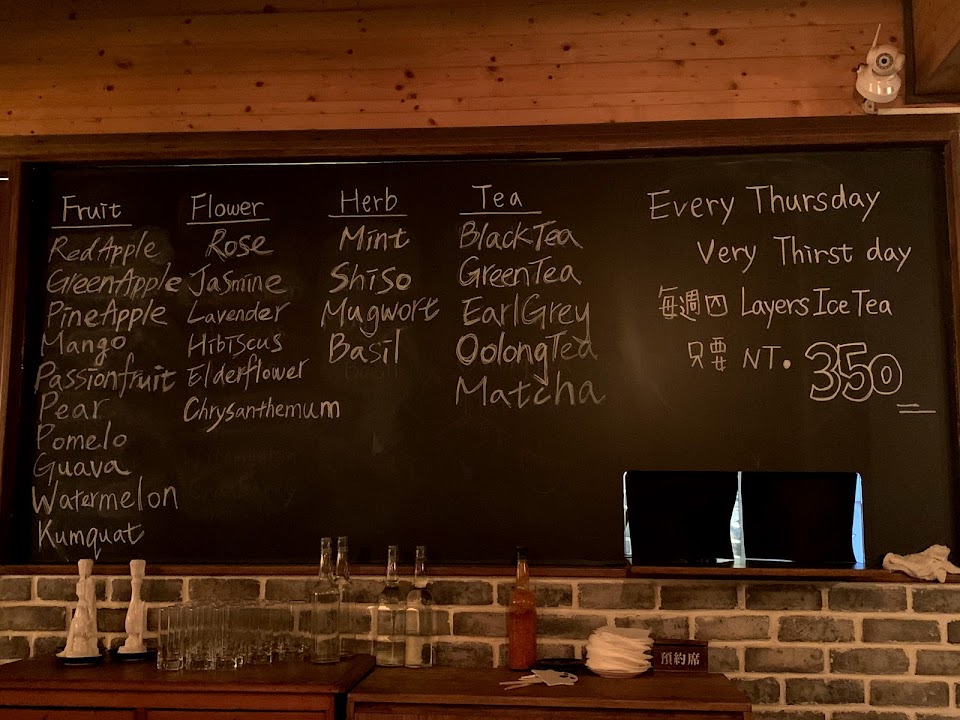 Fruit
Red Apple
Green Apple
PineApple
Mango
Passionfruit
Pear
Pomelo
Guava
Watermelon
Kumquat
Flower
Rose
Jasmine
Lavender
Hibiscus
Elderflower
Chrysanthemum
Herb
Mint
Shiso
Mugwort
Basil
Tea
Black Tea
Green Tea
Earl Grey
Oolong Tea
Matcha
Every Thursday
Very Thirst day
每週四 Layers Ice Tea
只要 NT. 350
預約席